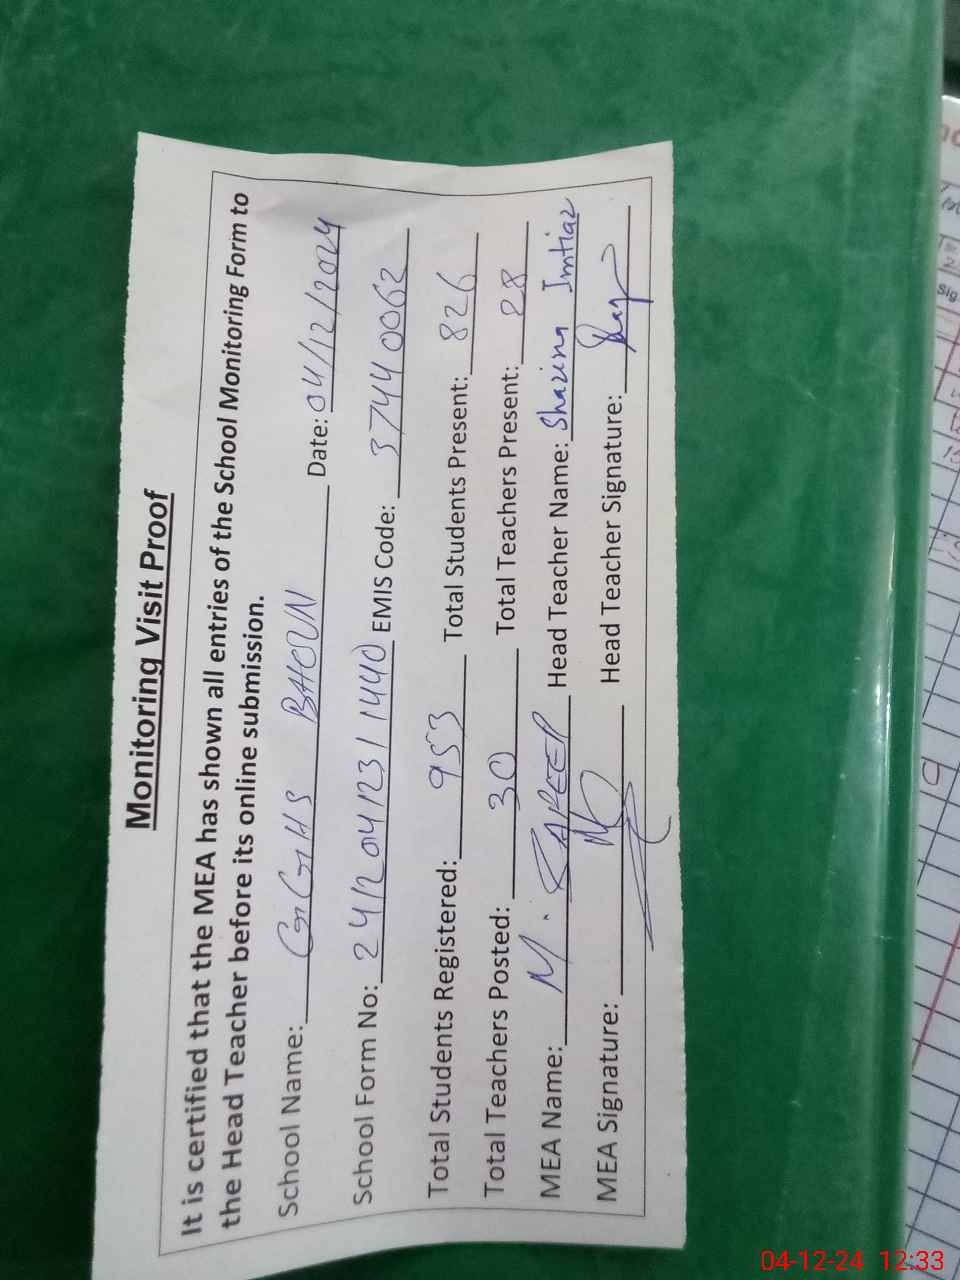 Monitoring Visit Proof
It is certified that the MEA has shown all entries of the School Monitoring Form to
the Head Teacher before its online submission.
School Name: GGHS BHOUN Date: 04/12/2024
School Form No: 24120412311440 EMIS Code: 37440062
Total Students Registered: 953 Total Students Present: 826
Total Teachers Posted: 30 Total Teachers Present: 28
MEA Name: M. Head Teacher Name: Imtiaz
MEA Signature: Head Teacher Signature:
04-12-24 12:33